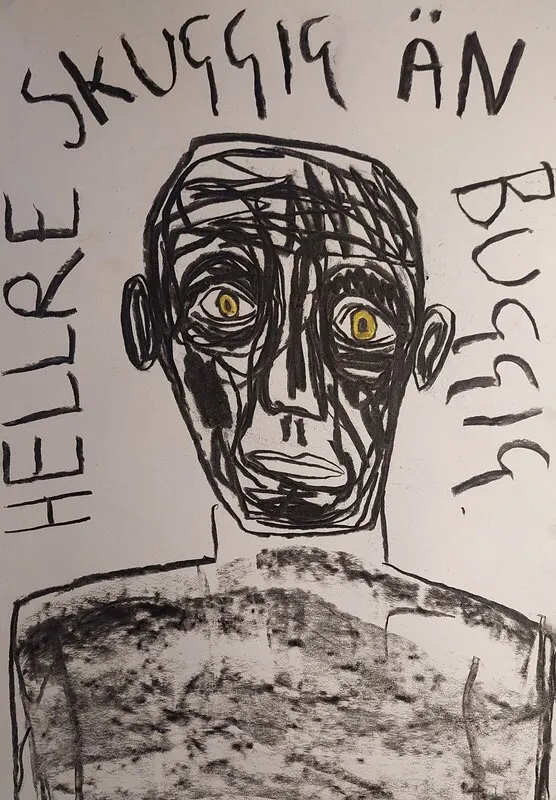 HELLRE
SKUGGIG ÄN
BUGGIG.